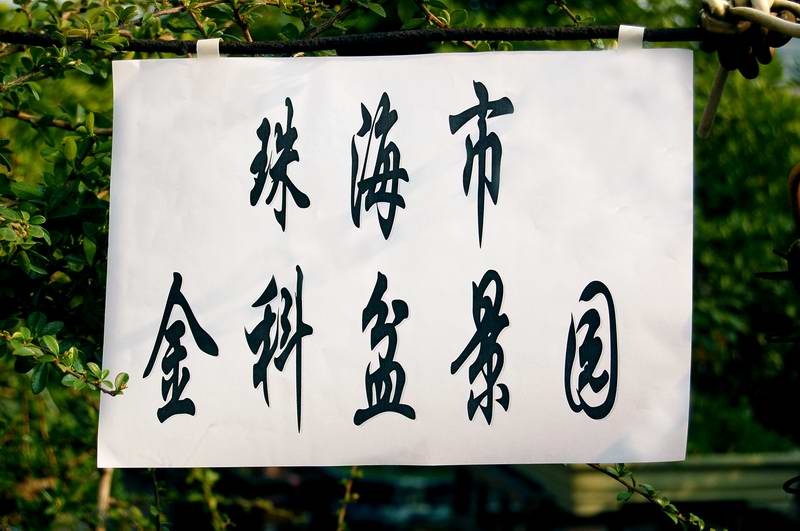 珠海市
金科盆景园